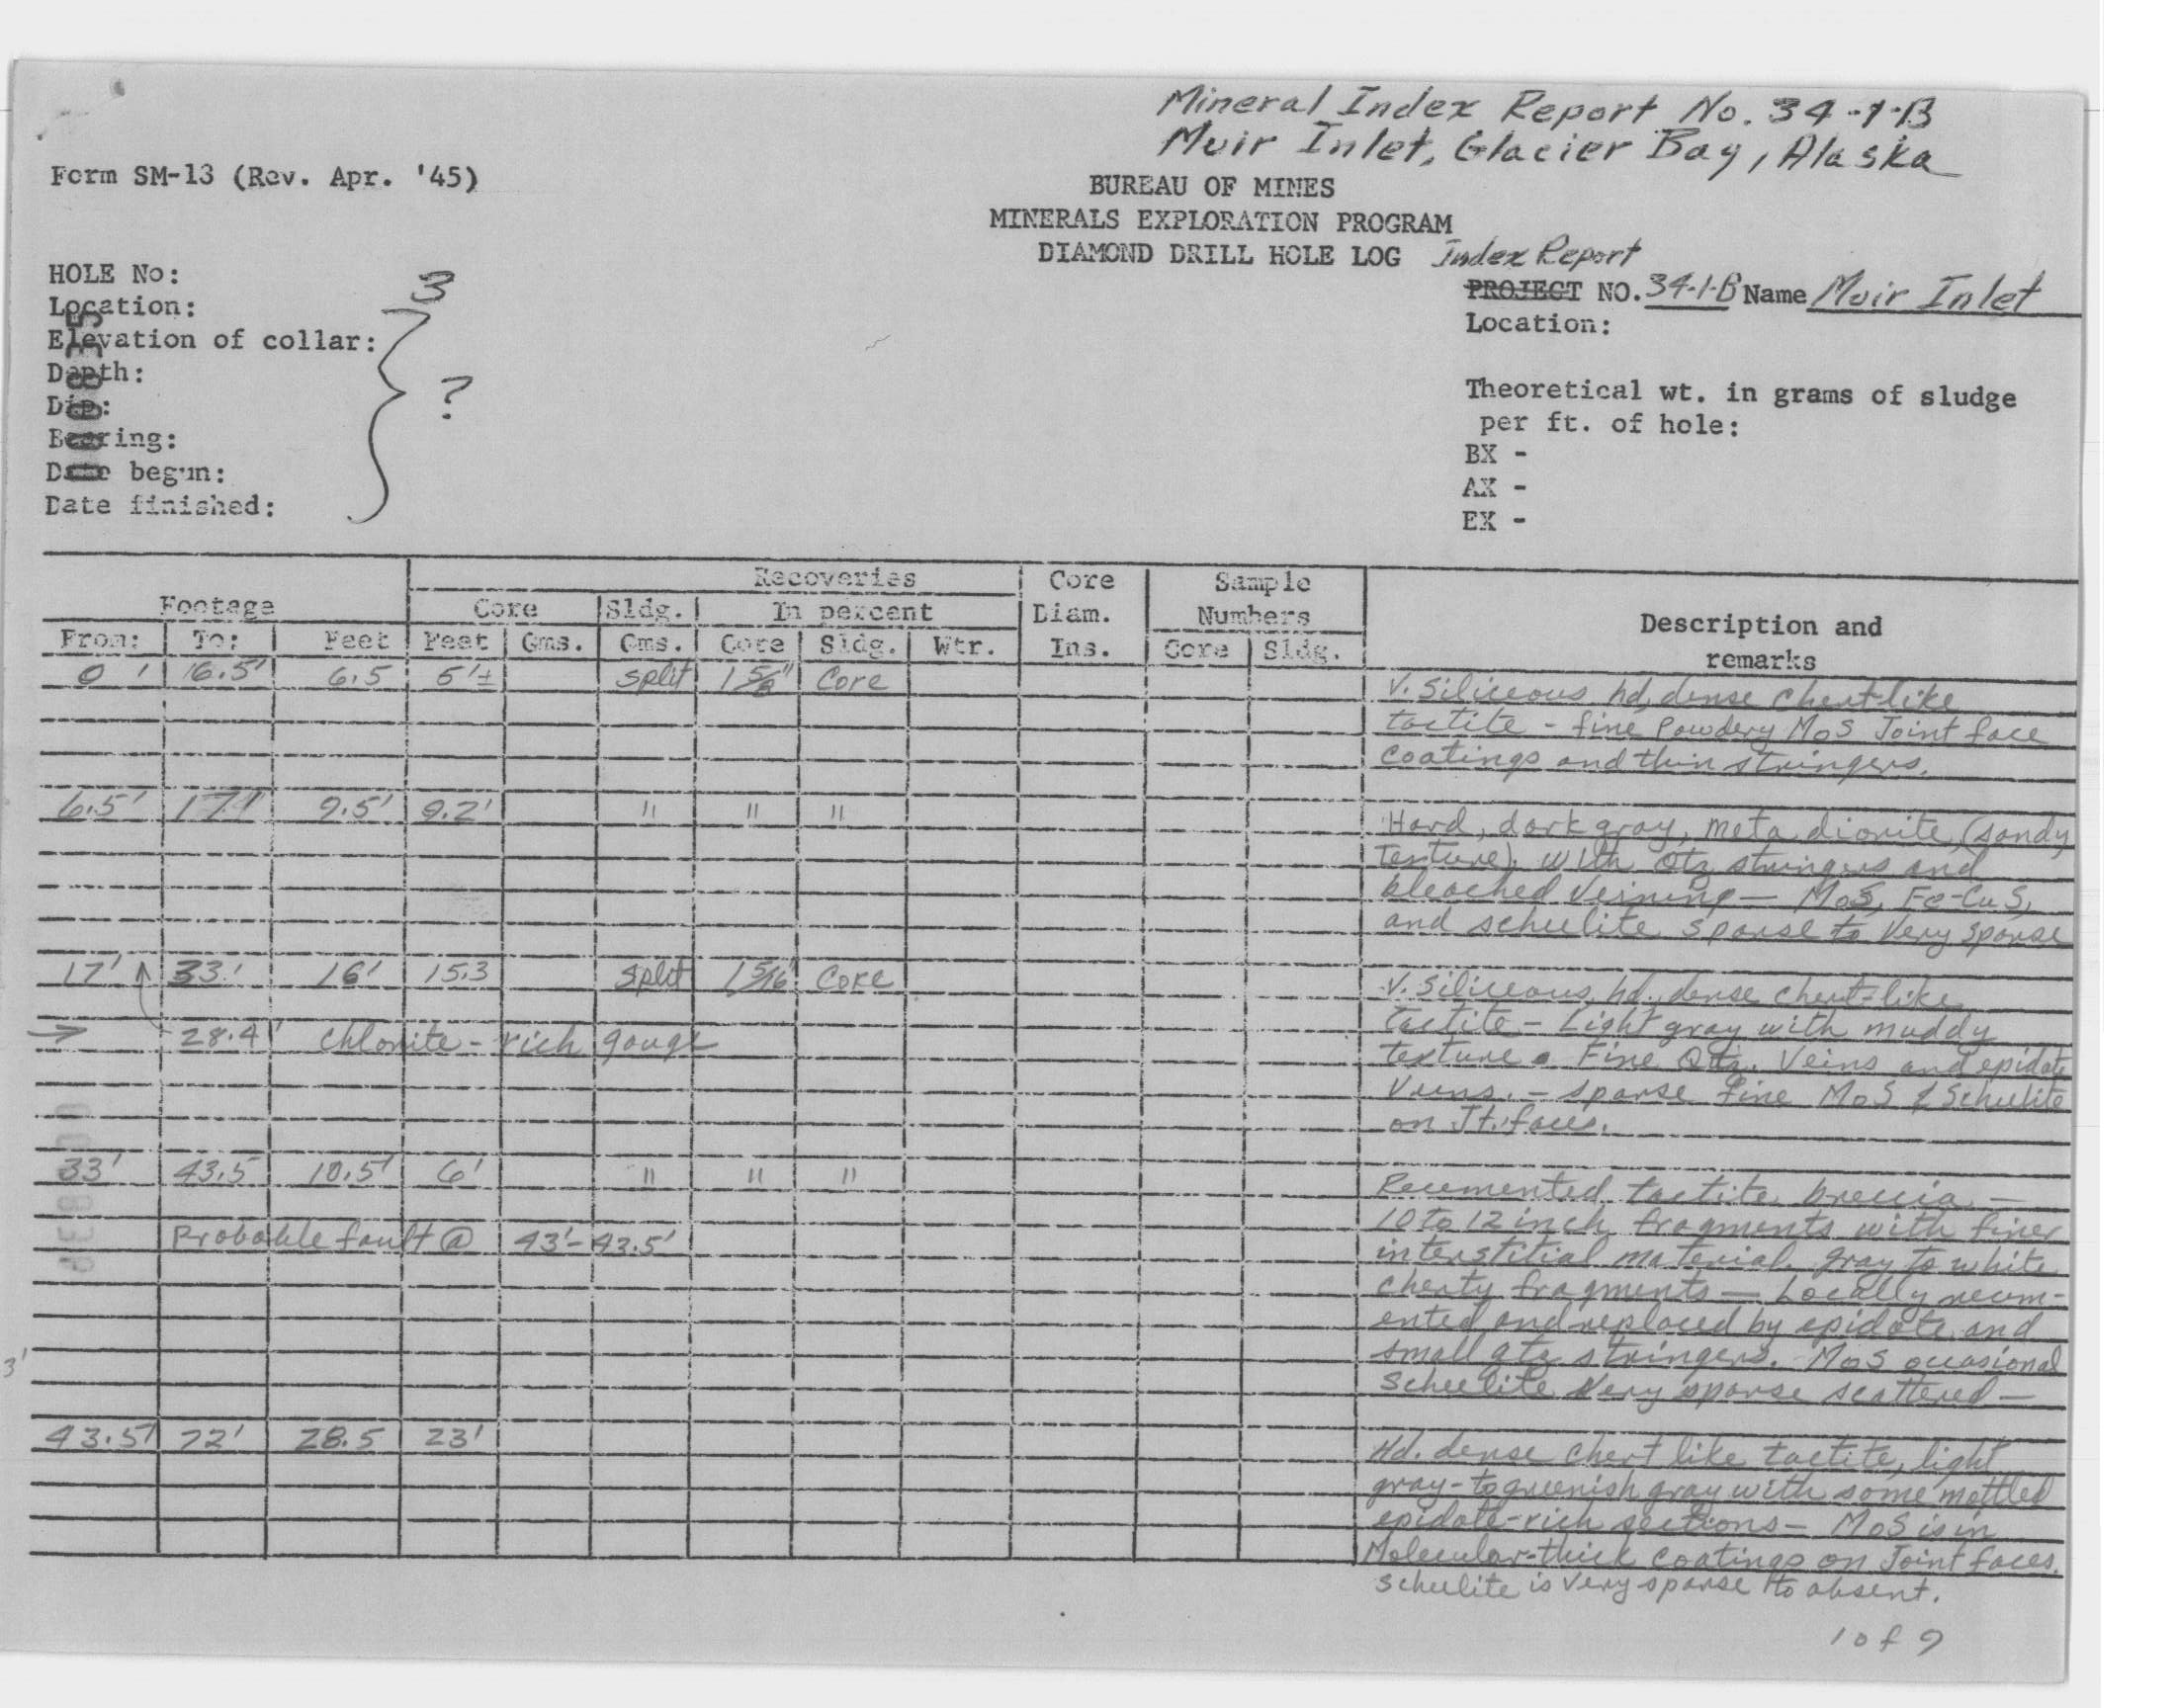 Mineral Index Report No. 34-1-B
Muir Inlet, Glacier Bay, Alaska
Form SM-13 (Rev. Apr. '45)
BUREAU OF MINES
MINERALS EXPLORATION PROGRAM
DIAMOND DRILL HOLE LOG Index Report
HOLE No: 3
PROJECT NO. 34-1-B Name Muir Inlet
Location:
Location:
Elevation of collar:
Depth:
Dip:
Bearing:
Date begun:
Date finished:
?
Theoretical wt. in grams of sludge
per ft. of hole:
BX -
AX -
EX -
Footage Recoveries Core Sample
Core Sldg. In percent Diam. Numbers Description and
From: To: Feet Feet Gms. Gms. Core Sldg. Wtr. Ins. Core Sldg. remarks
0' 6.5' 6.5 5'± split 1 5/8" Core
V. Siliceous hd, dense chert-like
tactite - fine powdery MoS Joint face
coatings and thin stringers.
6.5' 17' 9.5' 9.2' " " "
Hard, dark gray, meta diorite (sandy
texture). with Qtz stringers and
bleached veining — MoS, Fe-CuS,
and scheelite sparse to very sparse
17' 33' 16' 15.3 split 1 5/16 Core
V. Siliceous, hd., dense chert-like
28.4' chlorite-rich gouge
tactite - Light gray with muddy
texture. Fine Qtz. Veins and epidote
Veins. - sparse fine MoS & Scheelite
on Jt. faces.
33' 43.5 10.5' 6' " " "
Recemented tactite breccia —
Probable fault @ 43'-43.5'
10 to 12 inch fragments with finer
interstitial material. gray to white
cherty fragments — Locally recem-
ented and replaced by epidote and
small qtz stringers. MoS occasional
Scheelite very sparse scattered —
3'
43.5' 72' 28.5 23'
Hd. dense chert like tactite, light
gray-to greenish gray with some mottled
epidote-rich sections - MoS is in
Molecular-thick coatings on Joint faces.
Scheelite is very sparse to absent.
1 of 9